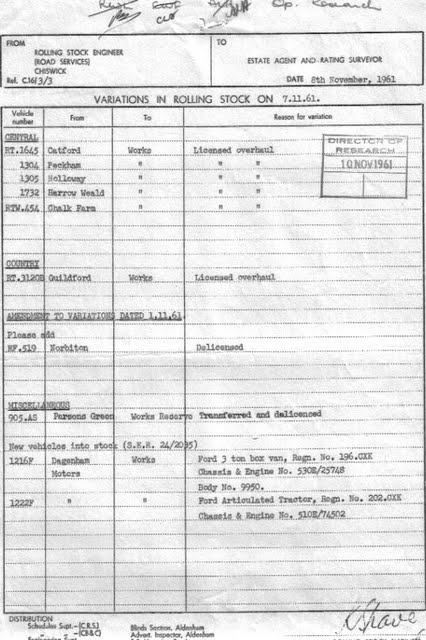 Op. Research
FROM
ROLLING STOCK ENGINEER
(ROAD SERVICES)
CHISWICK
Ref. C16/3/3
TO
ESTATE AGENT AND RATING SURVEYOR
DATE 8th November, 1961
VARIATIONS IN ROLLING STOCK ON 7.11.61.
Vehicle number From To Reason for variation
CENTRAL
RT.1645 Catford Works Licensed overhaul
1304 Peckham " " "
1305 Holloway " " "
1732 Harrow Weald " " "
RTW.454 Chalk Farm " " "
DIRECTOR OF
RESEARCH
10 NOV 1961
COUNTRY
RT.3120B Guildford Works Licensed overhaul
AMENDMENT TO VARIATIONS DATED 1.11.61.
Please add
RF.519 Norbiton Delicensed
MISCELLANEOUS
905.AS Parsons Green Works Reserve Transferred and delicenced
New vehicles into stock (S.E.R. 24/2035)
1216F Dagenham Works Ford 3 ton box van, Regn. No. 196.CXK
Motors Chassis & Engine No. 530E/25748
Body No. 9950.
1222F " " Ford Articulated Tractor, Regn. No. 202.CXK
Chassis & Engine No. 510E/74502
DISTRIBUTION
Schedules Supt.-(C.R.S.) Blinds Section, Aldenham
" -(CB&C) Advert. Inspector, Aldenham
K Shave